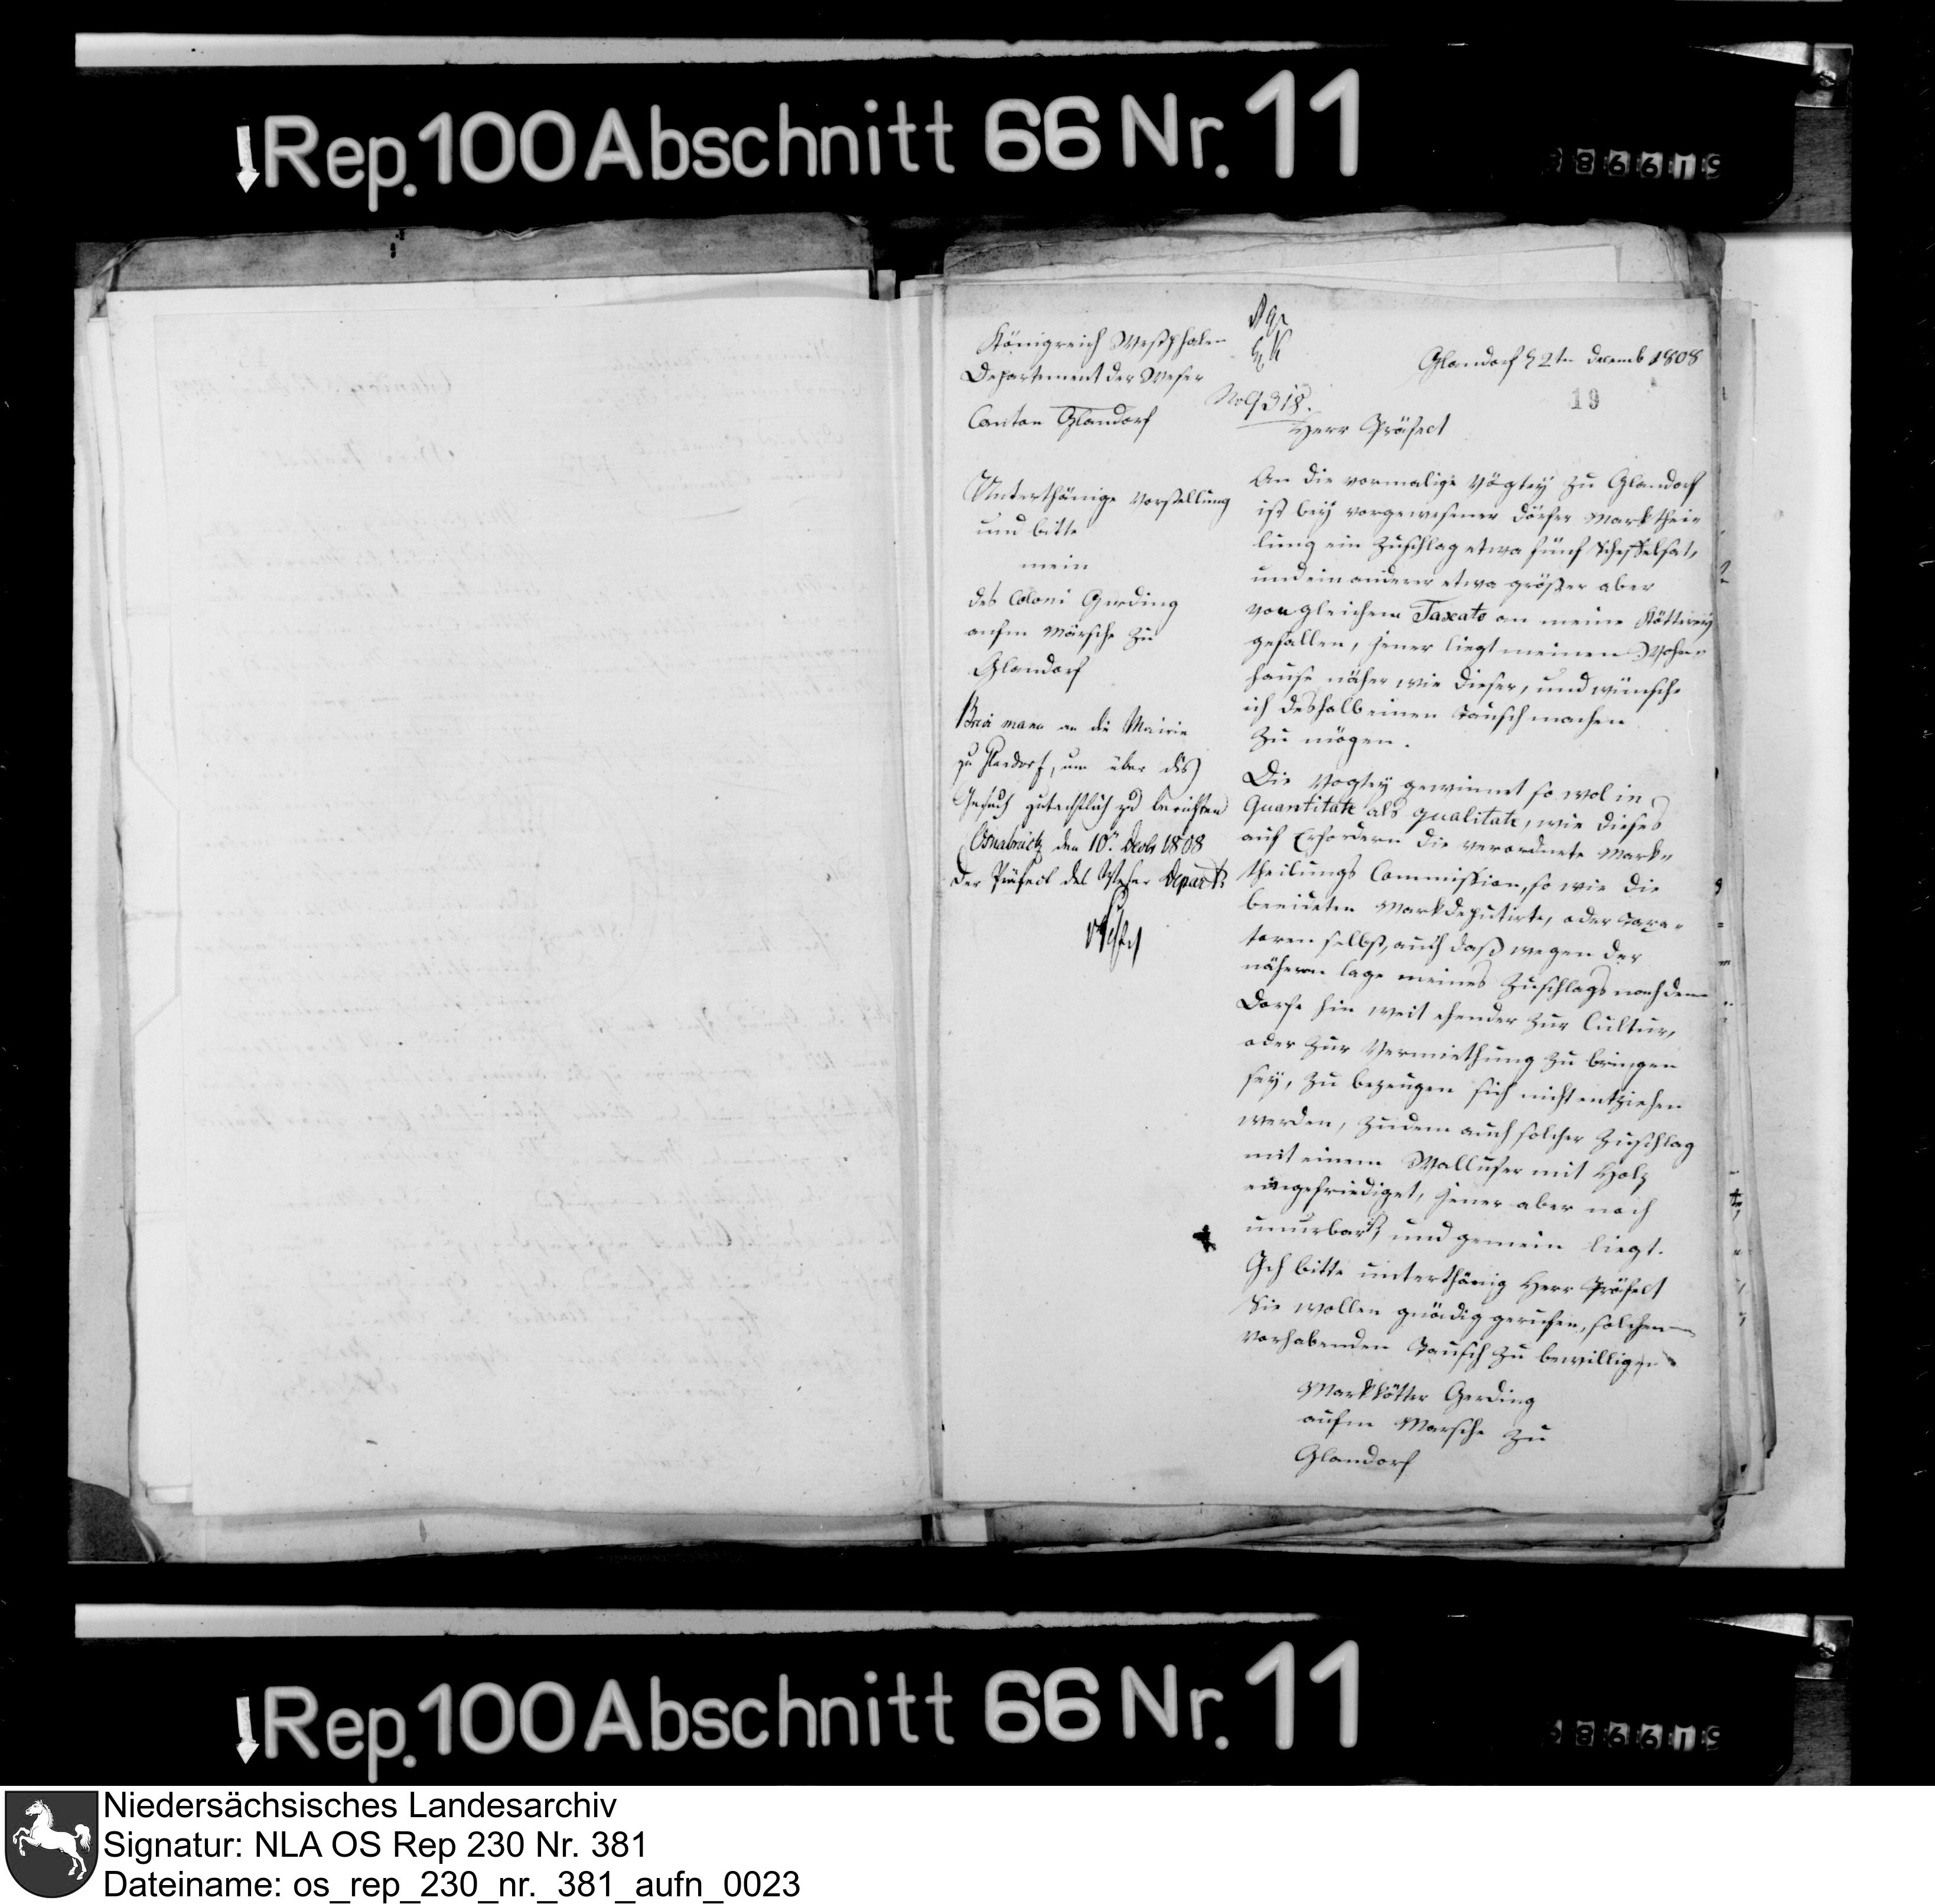 Rep. 100 Abschnitt 66 Nr. 11
86619
Königreich Westphalen
Departement der Weser
Canton Glandorf
No 9318.
Glandorf d 2tn Decemb 1808
19
Herr Präfect
Unterthänige Vorstellung
und bitte
mein
des Coloni Gerding
aufm Marsche zu
Glandorf
Br. m. an die Mairie
zu Glandorf, um über dis
Gesuch gutachtlich zu berichten
Osnabrück den 10. Decbr 1808
Der Präfect des Weser Depart.
An die vormalige Vögtey zu Glandorf
ist bey vorgewesener Dörfer Mark thei=
lung ein Zuschlag etwa fünf Scheffelsat,
und ein anderer etwa größer aber
von gleichem Taxato an meine Kötterey
gefallen, jener liegt meinen Wohn=
hause näher wie dieser, und wünsche
ich deshalb einen Tausch machen
zu mögen.
Die Vogtey gewinnet so wol in
Quantitate als qualitate, wie dieses
auf Erfordern die verordnete Mark=
theilungs Commission, so wie die
beeideten Markdeputirte, oder Taxa=
toren selbst, auch daß wegen der
nähern lage meines Zuschlags nach dem
Dorfe hin weit ehender zur Cultur,
oder zur Vermiethung zu bringen
sey, zu bezeugen sich nicht entziehen
werden, zudem auch solcher Zuschlag
mit einem Wallufer mit Holz
eingefriediget, jener aber noch
unurbar ist, und gemein liegt.
Ich bitte unterthänig Herr Präfect
Sie wollen gnädig geruhen, solchen
vorhabenden Tausch zu bewilligen
Markkötter Gerding
aufm Marsche zu
Glandorf
Rep. 100 Abschnitt 66 Nr. 11
86619
Niedersächsisches Landesarchiv
Signatur: NLA OS Rep 230 Nr. 381
Dateiname: os_rep_230_nr._381_aufn_0023